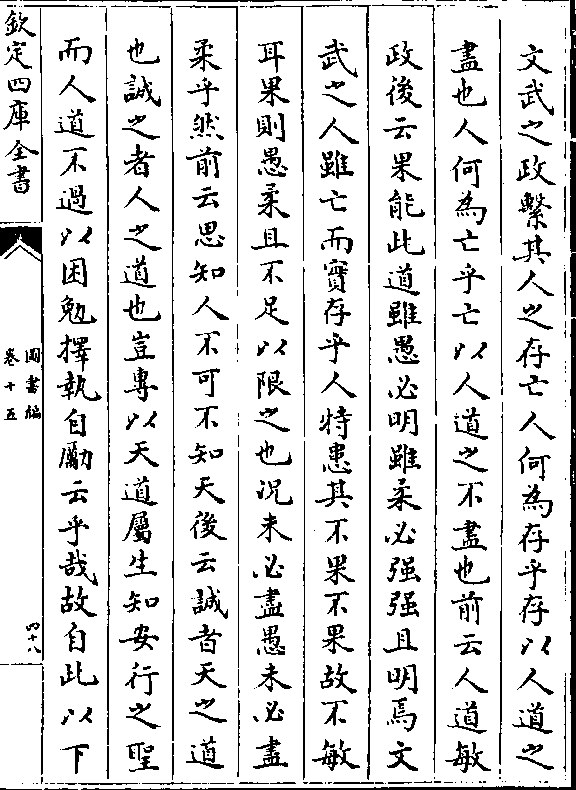 文武之政繫其人之存亡人何為存乎存以人道之
盡也人何為亡乎亡以人道之不盡也前云人道敏
政後云果能此道雖愚必明雖柔必强强且明焉文
武之人雖亡而實存乎人特患其不果不果故不敏
耳果則愚柔且不足以限之也况未必盡愚未必盡
柔乎然前云思知人不可不知天後云誠者天之道
也誠之者人之道也豈專以天道屬生知安行之聖
而人道不過以困勉擇執自勵云乎哉故自此以下
欽定四庫全書
圖書編
卷十五
四十八